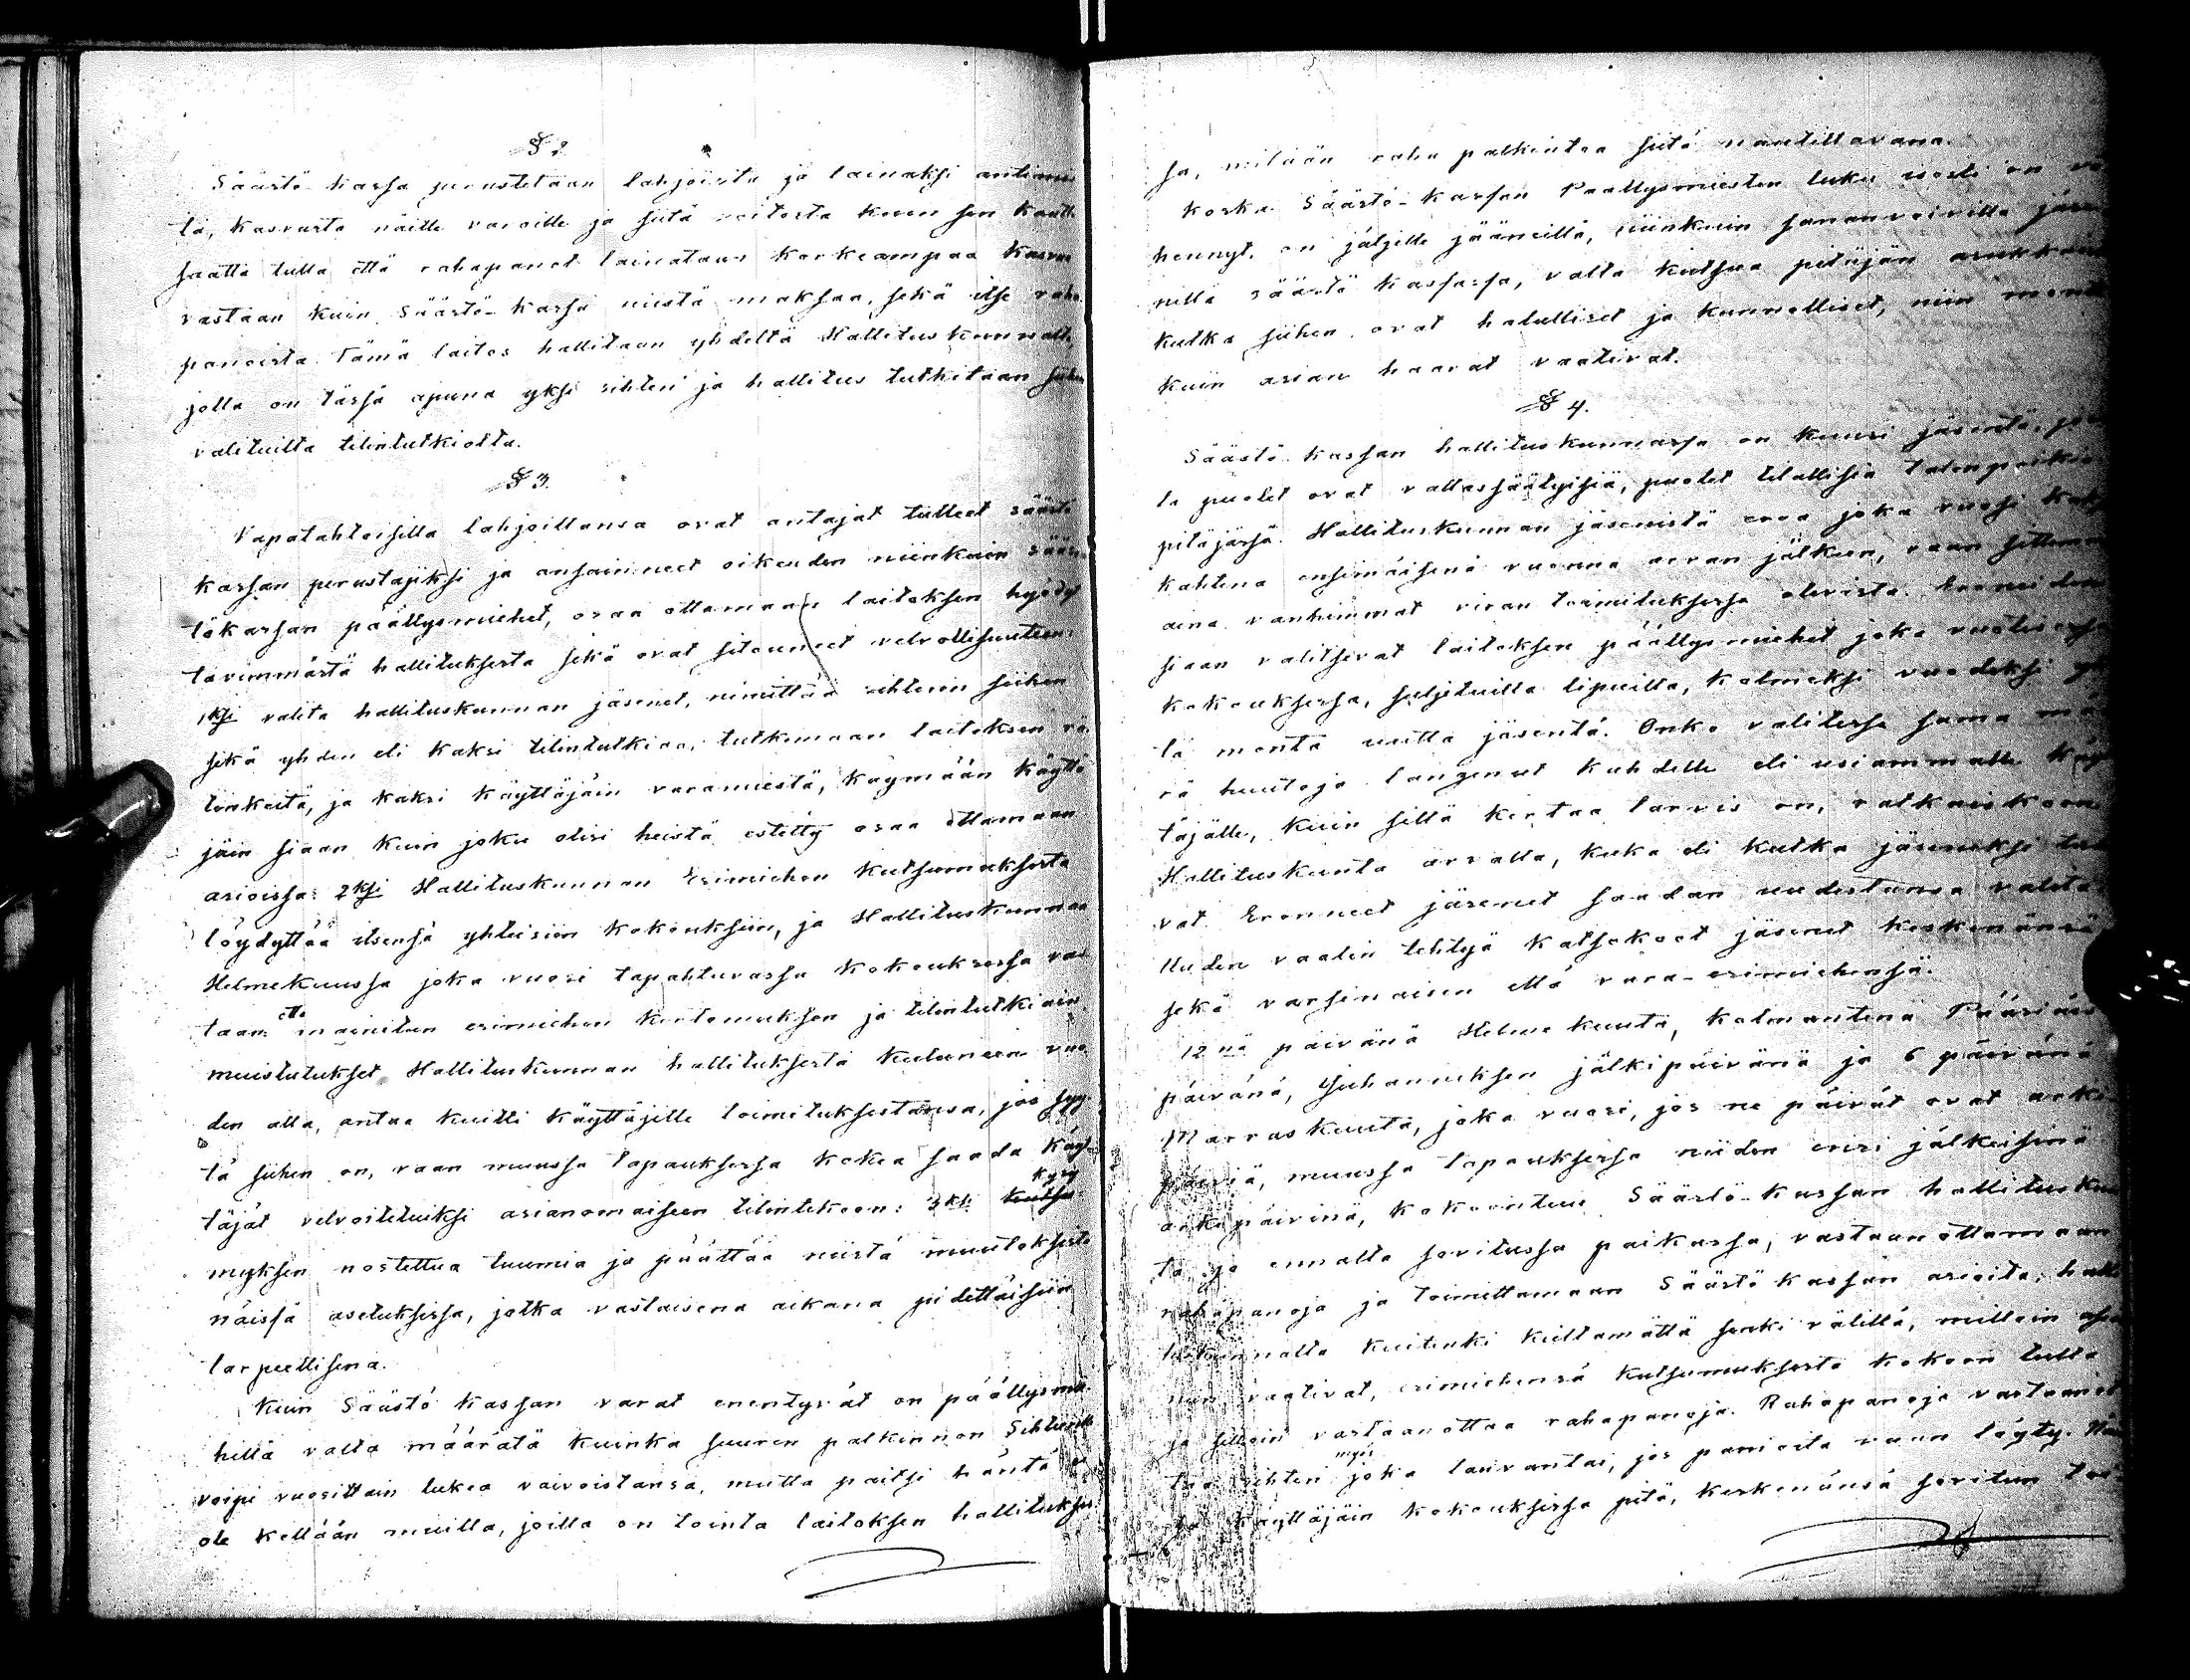 § 2
Säästö-kassa perustetaan lahjoista ja lainaksi antimis-
tä, kasvusta näille varoille ja siitä voitosta kuin sen kautta
saatta tulla että rahapanot lainataan korkeampaa kasvua
vastaan kuin Säästö-kassa niistä maksaa, sekä itse raha
panoista. Tämä laitos hallitaan yhdeltä Hallituskunnalta,
jolla on tässä apuna yksi sihteri ja hallitus tutkitaan siihen
valituilta tilintutkioilta.
§ 3.
Vapatahtoisilla lahjoillansa ovat antajat tulleet säästö
kassan perustajiksi ja ansainneet oikeuden niinkuin sääs-
tökassan päällysmiehet, osaa ottamaan laitoksen hyödyt
tävimmästä hallituksesta sekä ovat sitouneet velvollisuuteen:
1ksi valita hallituskunnan jäsenet, nimittää sihterin siihen
sekä yhden eli kaksi tilintutkiaa, tutkimaan laitoksen ra-
tinkeitä, ja kaksi käyttäjäin varamiestä, käymään käyttä
jäin siaan kuin joku olisi heistä estetty osaa ottamaan
asioissa: 2ksi Hallituskunnan Esimiehen kutsumuksesta
löydyttää itsensä yhteisiin kokouksiin, ja Hallituskunnan
Helmekuussa joka vuosi tapahtuvassa kokouksessa vas
taan otta mainitun esimiehen kertomuksen ja tilintutkiain
muistutukset Hallituskunnan hallituksesta kuluneen vuo
den alla, antaa kuitti käyttäjille toimituksestansa, jos syy-
tä siihen on, vaan muussa tapauksessa kokea saada käyt-
täjät velvoitetuiksi asianomaiseen tilintekoon: 3ksi kutsu kysy
myksen nostettua tuumia ja päättää niistä muutoksista
näissä asetuksissa, jotka vastaisena aikana pidettäisiin
tarpeellisena.
Kuin Säästö kassan varat enentyvät on päällysmie-
hillä valta määrätä kuinka suuren palkinnon Sihterille
voipi vuosittain lukea vaivoistansa, mutta paitsi häntä ei
ole kellään muilla, joilla on tointa laitoksen hallitukses-
sa, mitään raha palkintoa siitä nautittavana.
Koska Säästö-kassan Päällysmiesten luku isosti on vä
hennyt, on jäljille jääneillä, niinkuin sananvoivilla jäse
nillä säästö kassassa, valta kutsua pitäjän asukkaita
kutka siihen ovat halulliset ja kunnolliset, niin monta
kuin asian haarat vaativat.
§ 4.
Säästö-kassan hallituskunnassa on kuusi jäsentä, jois
ta puolet ovat vallassäätyisiä, puolet tilallisia talonpoikia
pitäjässä. Hallituskunnan jäsenistä eroa joka vuosi kaksi
kahtena ensimäisenä vuonna arvan jälkeen, vaan sittemmin
aina vanhimmat viran toimituksessa olevista. Eronneiden
siaan valitsevat laitoksen päällysmiehet joka vuotisessa
kokouksessa, suljetuilla lipuilla, kolmeksi vuodeksi yh
tä monta uutta jäsentä. Onko valitessa sama mä
rä huutoja langenut kahdelle eli usiammalle käyt
täjälle, kuin sillä kertaa tarvis on, ratkaiskoon
Hallituskunta arvalla, kuka eli kutka jäseneksi tule
vat. Eronneet jäsenet saadan uudestansa valita.
Uuden vaalin tehtyä katsokoot jäsenet keskenänsä
sekä varsinaisen että vara-esimiehensä.
12 nä päivänä Helmekuuta, kolmantena Pääsiäis
päivänä, Juhannuksen jälkipäivänä ja 6 päivänä
Marraskuuta, joka vuosi, jos ne päivät ovat arki
päiviä, muussa tapauksessa niiden ensi jälkeisinä
arkipäivinä, kokoontuu Säästö-kassan hallituskun
ta ja ennalta sovitussa paikassa, vastaan ottamaan
rahapanoja ja toimittamaan Säästö kassan asioita; halli
tuskunnalta kuitenki kieltamättä senki välillä, milloin asia
niin vaativat, esimiehensä kutsumuksesta kokoon tulla
ja silloin vastaanottaa rahapanoja. Rahapanoja vastaanot
taa sihteri myös joka lauvantai, jos panioita vaan löyty. Näis
sä käyttäjäin kokouksissa pitä, keskenänsä sovitun tai